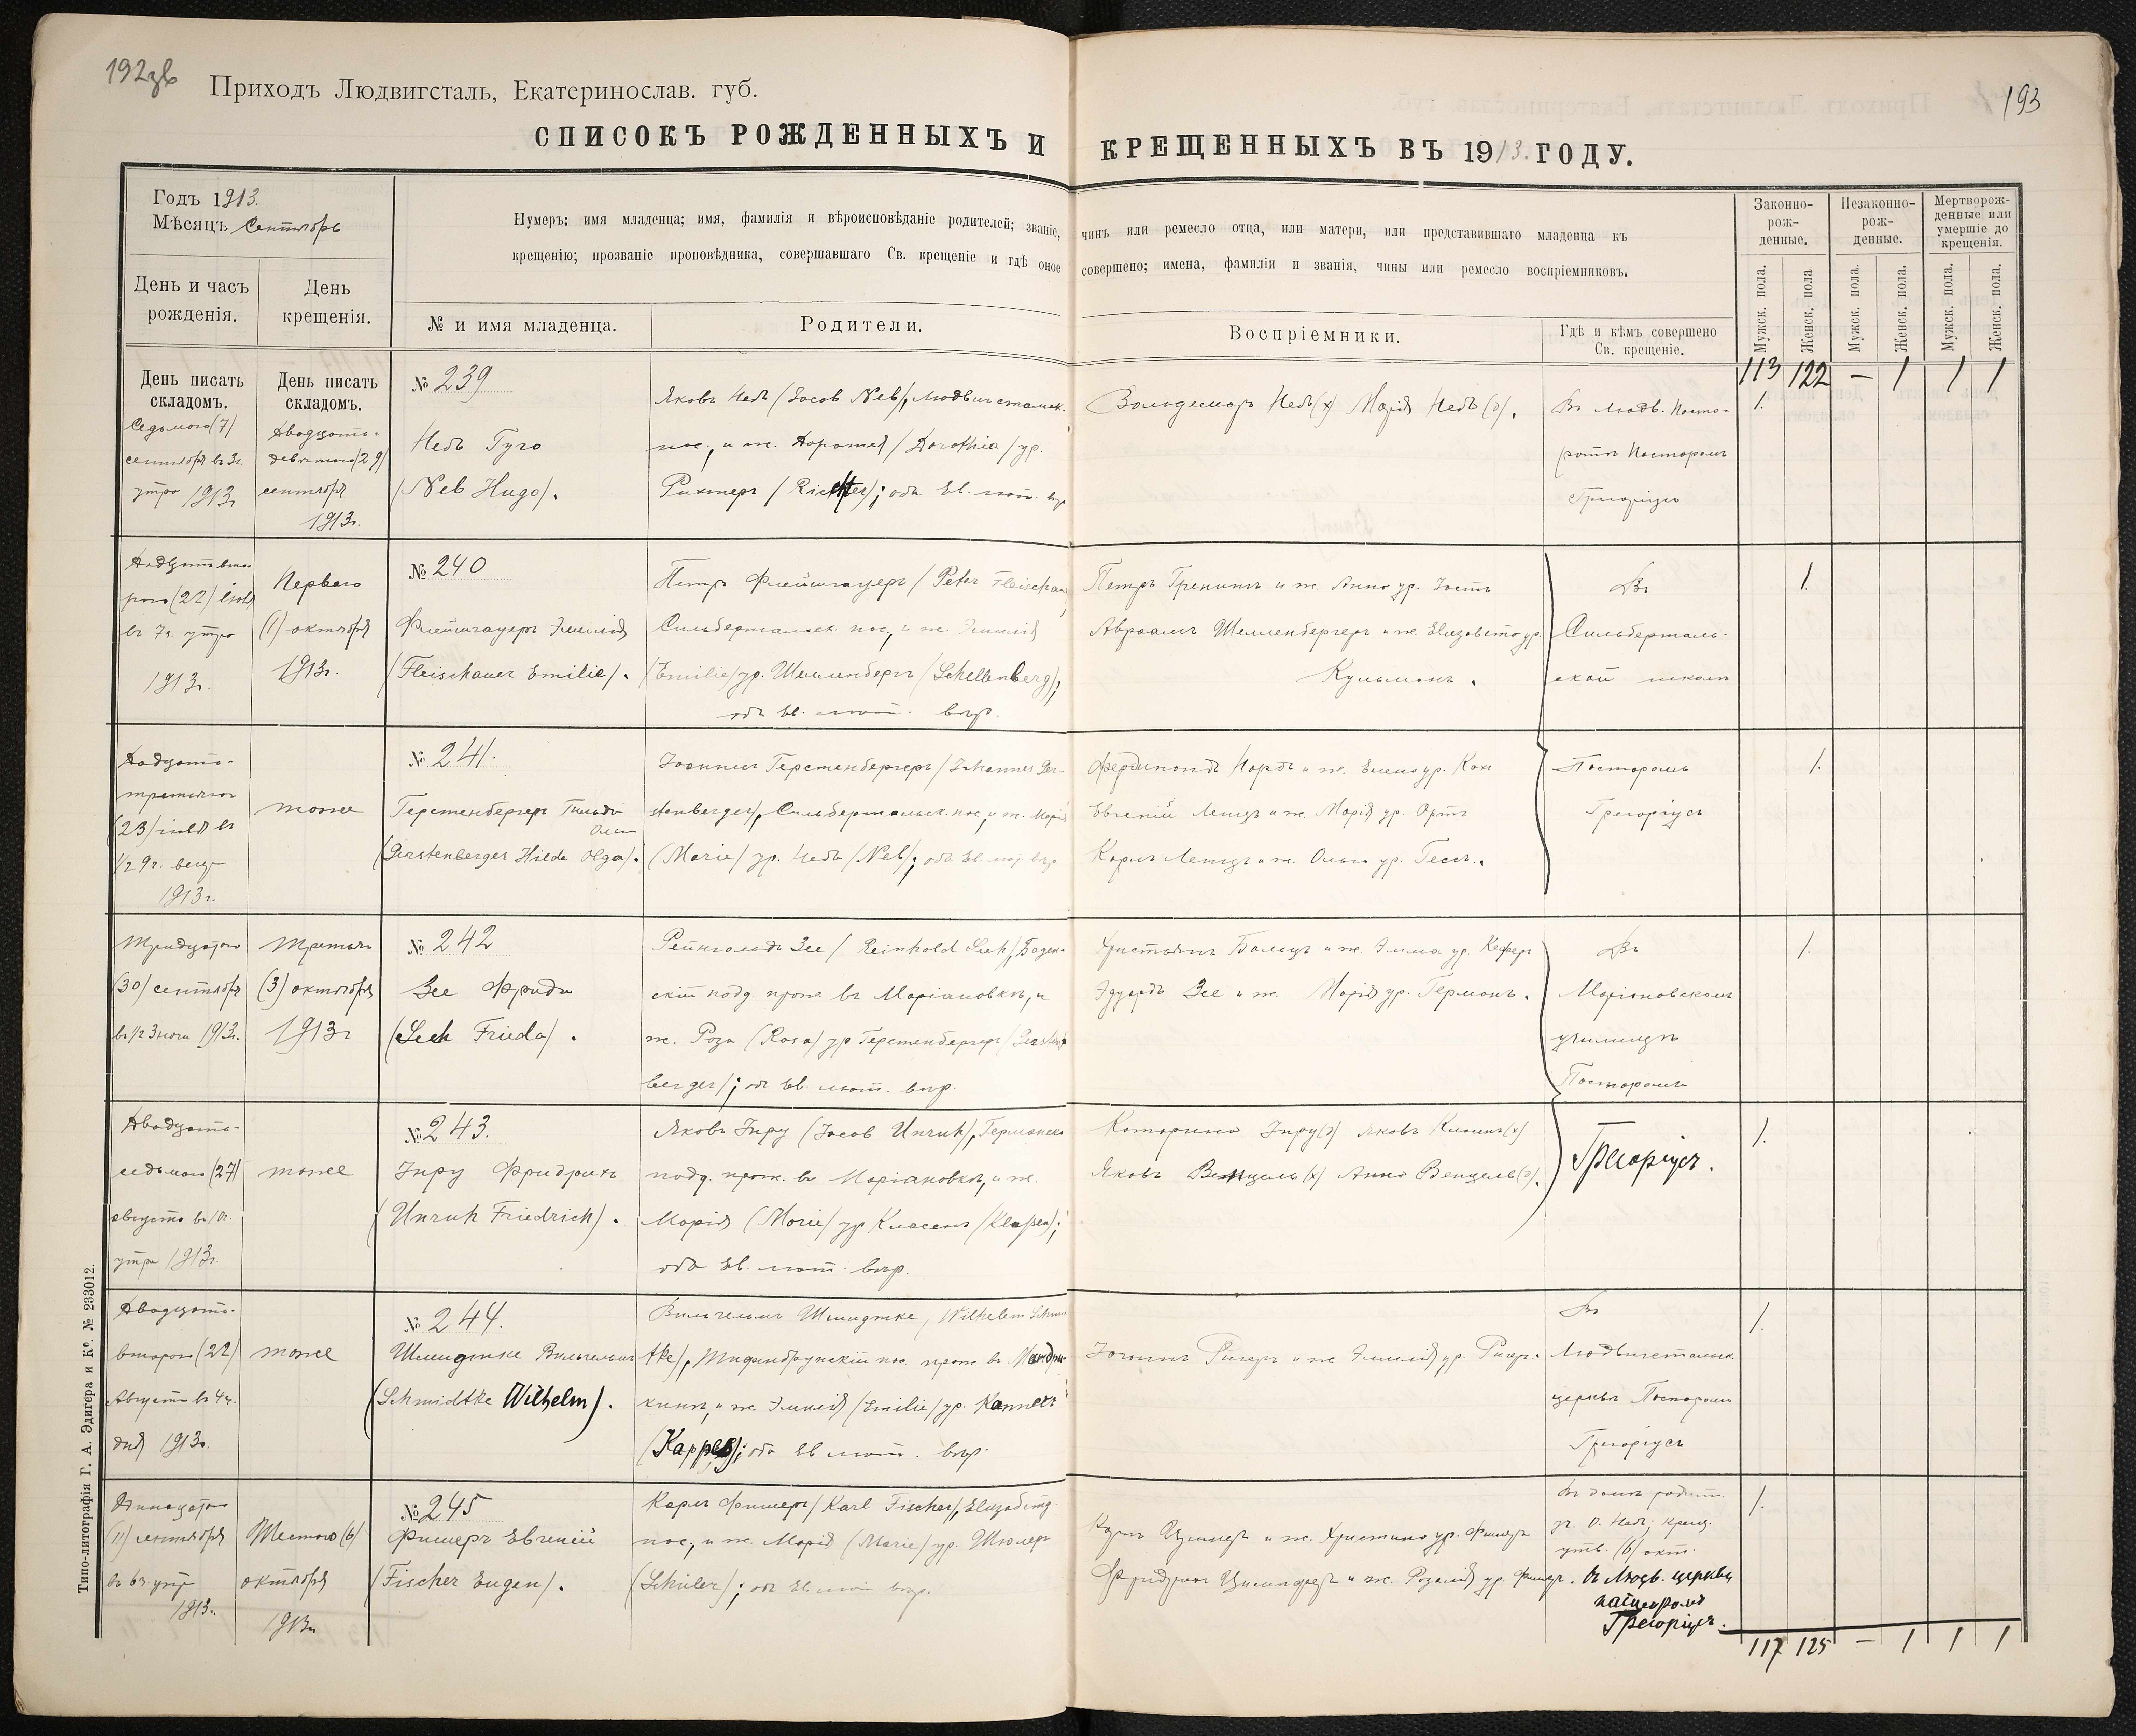 192зв
193
Приходъ Людвигсталь, Екатеринослав. губ.
СПИСОКЪ РОЖДЕННЫХЪ И КРЕЩЕННЫХЪ ВЪ 1913. ГОДУ.
Годъ 1913.
Мѣсяцъ Сентябрь
День и часъ рожденія.
День крещенія.
Нумеръ; имя младенца; имя, фамилія и вѣроисповѣданіе родителей; званіе, чинъ или ремесло отца, или матери, или представившаго младенца къ
крещенію; прозваніе проповѣдника, совершавшаго Св. крещеніе и гдѣ оное совершено; имена, фамиліи и званія, чины или ремесло воспріемниковъ.
№ и имя младенца.
Родители.
Воспріемники.
Гдѣ и кѣмъ совершено Св. крещеніе.
Законно-рож-денные.
Незаконно-рож-денные.
Мертворож-денные или умершіе до крещенія.
Мужск. пола.
Женск. пола
Мужск. пола.
Женск. пола.
Мужск. пола.
Женск. пола.
113 122 — 1 1 1
День писать складомъ.
День писать складомъ.
Седьмого (7)
сентября въ 3ч.
утра 1913г
Двадцать-
девятого (29)
сентября
1913г.
№ 239
Небъ Гуго
(Neb Hugo).
Яковъ Небъ (Jacob Neb), Людвигстальск.
пос., и ж. Доротея (Dorothia) ур.
Рихтеръ (Richter); оба Ев. лют. вѣр
Вольдемаръ Небъ (х) Марія Небъ (д).
Въ Людв. Пасто-
ратѣ Пасторомъ
Грегоріусъ
1.
(22) іюля
въ 7ч. утра
1913г.
Перваго
(1) октября
1913г.
№ 240
Флейшгауеръ Эмилія
(Fleischauer Emilie).
Петръ Флейшгауеръ (Peter Fleischau
Сильбертальск. пос., и ж. Эмилія
(Emilie) ур. Шелленбергъ (Schellenberg);
оба Ев. лют. вѣр.
Петръ и ж. Анна ур. Іостъ
Авраамъ Шелленбергеръ и ж. Елизавета ур.
Кульманъ.
Въ
Сильберталь-
ской школѣ
1.
(23) іюля въ
1/2 9ч. веч
1913г.
тоже
№ 241.
Герстенбергеръ Гильда
Ольга
(Gerstenberger Hilda Olga).
Іоаннесъ Герстенбергеръ (Johannes Ger-
stenberger), Сильбертальск. пос., и ж. Марія
(Marie) ур. Небъ (Neb); оба Ев. лют. вѣр
Фердинандъ и ж. Елена ур.
Евгеній Ленцъ и ж. Марія ур. Ортъ
Карлъ Ленцъ и ж. Ольга ур. Гессъ.
Пасторомъ
Грегоріусъ
1.
Тридцатого
(30) сентября
въ 1/2 3 ночи 1913г.
Третьяго
(3) октября
1913г
№ 242
Зее Фрида
(Seeh Frieda).
Рейнгольдъ Зее (Reinhold Seeh), Баден-
скій подд. прож. въ Маріановкѣ, и
ж. Роза (Rosa) ур Герстенбергеръ (Gersten-
berger); оба Ев. лют. вѣр.
Христьянъ Бальцъ и ж. Эмма ур. Кеферъ
Эдуардъ Зее и ж. Марія ур. Германъ.
Въ
Маріановскомъ
училищѣ
Пасторомъ
1.
Двадцать-
седьмого (27)
августа въ 10ч.
утра 1913г.
тоже
№ 243.
Унру Фридрихъ
(Unruh Friedrich).
Яковъ Унру (Jacob Unruh), Германск
подд. прож. въ Маріановкѣ, и ж.
Марія (Marie) ур Классенъ (Klaßen);
оба Ев. лют. вѣр.
Катарина Унру (д) Яковъ Классенъ (х)
Яковъ Венцель (х) Анна Венцель (д).
Грегоріусъ.
1.
Двадцать-
второго (22)
Августа въ 4ч.
дня 1913г.
тоже
№ 244.
Шмидтке Вильгельмъ
(Schmidtke Wilhelm).
Вильгельмъ Шмидтке (Wilhelm Schmid
tke), Тиденбрунскій пос. прож въ Мандры-
кинѣ, и ж. Эмилія (Emilie) ур. Каппесъ
(Kappes); оба Ев лют. вѣр.
Іоганнъ Ригеръ и ж Эмилія ур. Ригеръ.
Въ
Людвигстальск.
церкви Пасторомъ
Грегоріусъ
1.
(11) сентября
въ 6ч. утр
1913г.
Шестого (6)
октября
1913г.
№ 245
Фишеръ Евгеній
(Fischer Eugen).
Карлъ Фишеръ (Karl Fischer),
пос., и ж. Марія (Marie) ур. Шюлеръ
(Schüler); оба Ев лют вѣр.
Карлъ и ж. Христина ур. Фишеръ
Фридрихъ и ж. Розалія ур. Фишеръ.
Въ домѣ родит.
утв. (6) окт.
въ Людв. церкви
пасторомъ
Грегоріусъ.
1.
117 125 — 1 1 1
Типо-литографія Г. А. Эдигера и Ко. № 233012.